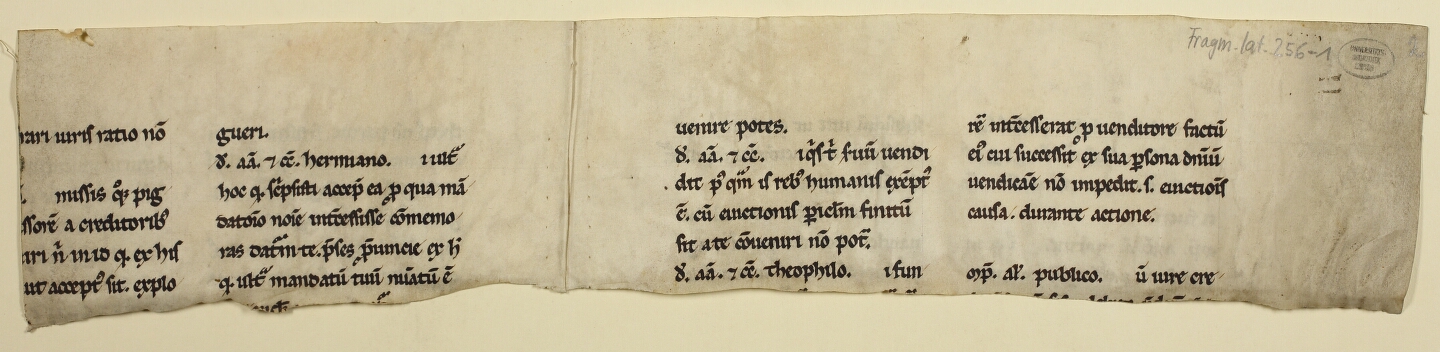 Fragm. lat. 256-1
rari iuris ratio nō
missis q̊ꝫ pig
ssorē a creditorib9
ari n̄ in id q. ex his
ut accept9 sit. explo
gueri.
d̄. aā. ⁊ cē. hermiano.
hoc q. sc̄psisti accep̄ ea ꝓ qua mā
datoīo noīe intēcessisse cōmemo
ras dat̄m te. p̄ses ꝓuincie ex h̄
q. ult̄ mandatū tuū nūatū ē
uenire potes.
d̄. aā. ⁊ cē. fuū uendi
dit p9 q̄m is reb9 humanis exēpt9
ē. cū euictionis ꝑiclm finitū
sit a te cōueniri nō pot̄.
d̄. aā. ⁊ cē. theophilo.
rē intēcesserat ꝓ uenditore factū
ei9 cui successit ex sua ꝑsona dn̄iū
uendicāe nō impedit. s. euictiois
causa. durante actione.
īp̄. al'. publico. ū iure cre